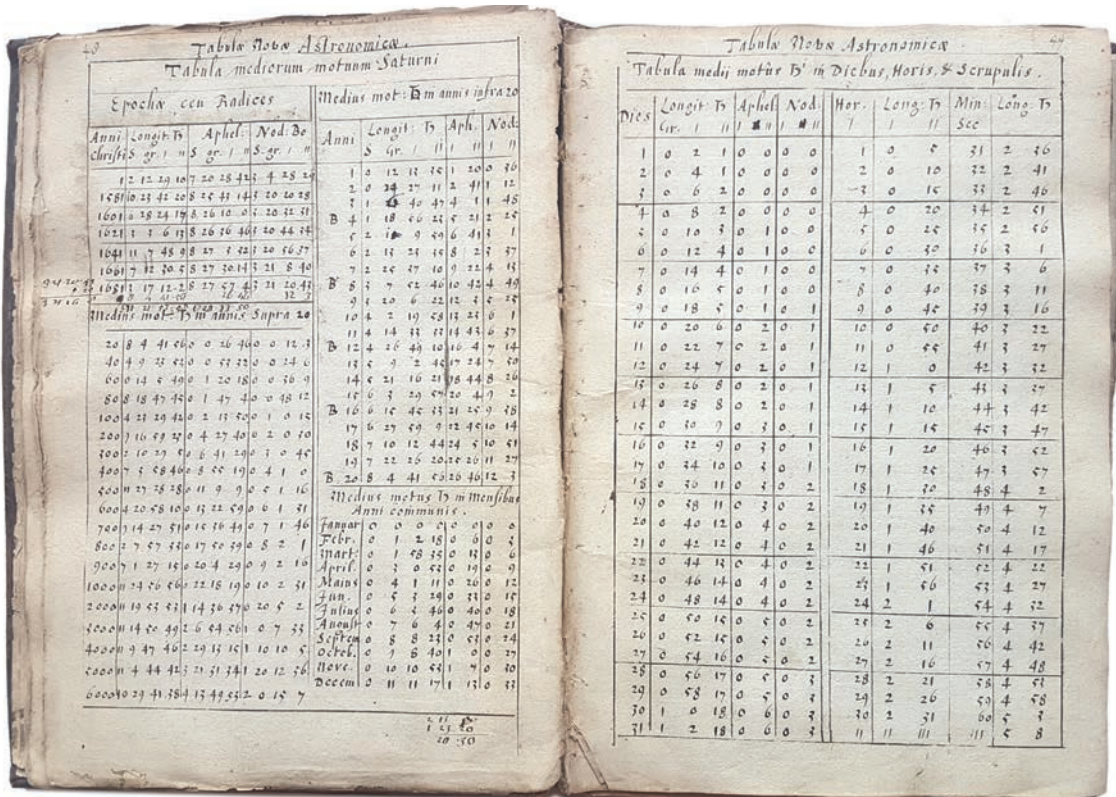 48
Tabulæ Novæ Astronomicæ.
Tabula mediorum motuum Saturni
Epochæ ceu Radices
Anni Longit: ♄ Aphel: Nod: Bo
Christi S gr. ı ıı S gr. ı ıı S gr. ı ıı
1 2 12 29 10 7 20 28 42 3 4 28 29
1581 10 23 42 20 8 25 43 14 3 20 20 28
1601 6 28 24 17 8 26 10 0 3 20 32 31
1621 3 3 6 13 8 26 36 46 3 20 44 34
1641 11 7 48 9 8 27 3 32 3 20 56 37
1661 7 12 30 5 8 27 30 14 3 21 8 40
1681 3 17 12 2 8 27 57 4 3 21 20 43
Medius mot: ♄ in annis Supra 20
20 8 4 41 56 0 0 26 46 0 0 12 3
40 4 9 23 52 0 0 53 32 0 0 24 6
60 0 14 5 49 0 1 20 18 0 0 36 9
80 8 18 47 45 0 1 47 4 0 0 48 12
100 4 23 29 42 0 2 13 50 0 1 0 15
200 9 16 59 23 0 4 27 40 0 2 0 30
300 2 10 29 5 0 6 41 29 0 3 0 45
400 7 3 58 46 0 8 55 19 0 4 1 0
500 11 27 28 28 0 11 9 9 0 5 1 16
600 4 20 58 10 0 13 22 59 0 6 1 31
700 9 14 27 51 0 15 36 49 0 7 1 46
800 2 7 57 33 0 17 50 39 0 8 2 1
900 7 1 27 15 0 20 4 29 0 9 2 16
1000 11 24 56 56 0 22 18 19 0 10 2 31
2000 11 19 53 53 1 14 36 37 0 20 5 2
3000 11 14 50 49 2 6 54 56 1 0 7 33
4000 11 9 47 46 2 29 13 15 1 10 10 5
5000 11 4 44 42 3 21 31 34 1 20 12 36
6000 10 29 41 38 4 13 49 52 2 0 15 7
Medius mot: ♄ in annis infra 20
Anni Longit: ♄ Aph. Nod:
S Gr. ı ıı ı ıı ı ıı
1 0 12 13 35 1 20 0 36
2 0 24 27 11 2 41 1 12
3 1 6 40 47 4 1 1 48
B 4 1 18 56 23 5 21 2 25
5 2 1 9 59 6 41 3 1
6 2 13 23 35 8 2 3 37
7 2 25 37 10 9 22 4 13
B 8 3 7 52 46 10 42 4 49
9 3 20 6 22 12 3 5 25
10 4 2 19 58 13 23 6 1
11 4 14 33 33 14 43 6 37
B 12 4 26 49 10 16 4 7 14
13 5 9 2 45 17 24 7 50
14 5 21 16 21 18 44 8 26
15 6 3 29 57 20 4 9 2
B 16 6 15 45 33 21 25 9 38
17 6 27 59 9 22 45 10 14
18 7 10 12 44 24 5 10 51
19 7 22 26 20 25 26 11 27
B. 20 8 4 41 56 26 46 12 3
Medius motus ♄ in Mensibus
Anni communis.
Januar 0 0 0 0 0 0 0
Febr. 0 1 2 18 0 6 0 3
Mart: 0 1 58 35 0 13 0 6
April. 0 3 0 53 0 19 0 9
Maius 0 4 1 11 0 26 0 12
Jun. 0 5 3 29 0 33 0 15
Julius 0 6 3 46 0 40 0 18
August 0 7 6 4 0 47 0 21
Septem 0 8 8 23 0 53 0 24
Octob. 0 9 8 40 1 0 0 27
Nove. 0 10 10 53 1 7 0 30
Decem 0 11 11 17 1 13 0 33
2 11
1 23 20
20 50
Tabulæ Novæ Astronomicæ
Tabula medij motûs ♄ in Diebus, Horis, & Scrupulis.
Dies Longit: ♄ Aphel Nod: Hor. Long: ♄ Min: Long: ♄
Gr. ı ıı ı ıı ı ıı ı ı ıı Sec
1 0 2 1 0 0 0 0 1 0 5 31 2 36
2 0 4 1 0 0 0 0 2 0 10 32 2 41
3 0 6 2 0 0 0 0 3 0 15 33 2 46
4 0 8 2 0 0 0 0 4 0 20 34 2 51
5 0 10 3 0 1 0 0 5 0 25 35 2 56
6 0 12 4 0 1 0 0 6 0 30 36 3 1
7 0 14 4 0 1 0 0 7 0 35 37 3 6
8 0 16 5 0 1 0 1 8 0 40 38 3 11
9 0 18 5 0 1 0 1 9 0 45 39 3 16
10 0 20 6 0 2 0 1 10 0 50 40 3 22
11 0 22 7 0 2 0 1 11 0 55 41 3 27
12 0 24 7 0 2 0 1 12 1 0 42 3 32
13 0 26 8 0 2 0 1 13 1 5 43 3 37
14 0 28 8 0 2 0 1 14 1 10 44 3 42
15 0 30 9 0 3 0 1 15 1 15 45 3 47
16 0 32 9 0 3 0 1 16 1 20 46 3 52
17 0 34 10 0 3 0 1 17 1 25 47 3 57
18 0 36 11 0 3 0 2 18 1 30 48 4 2
19 0 38 11 0 3 0 2 19 1 35 49 4 7
20 0 40 12 0 4 0 2 20 1 40 50 4 12
21 0 42 12 0 4 0 2 21 1 46 51 4 17
22 0 44 13 0 4 0 2 22 1 51 52 4 22
23 0 46 14 0 4 0 2 23 1 56 53 4 27
24 0 48 14 0 4 0 2 24 2 1 54 4 32
25 0 50 15 0 5 0 2 25 2 6 55 4 37
26 0 52 15 0 5 0 2 26 2 11 56 4 42
27 0 54 16 0 5 0 2 27 2 16 57 4 48
28 0 56 17 0 5 0 3 28 2 21 58 4 53
29 0 58 17 0 5 0 3 29 2 26 59 4 58
30 1 0 18 0 6 0 3 30 2 31 60 5 3
31 1 2 18 0 6 0 3 ıı ıı ııı ııı 5 8